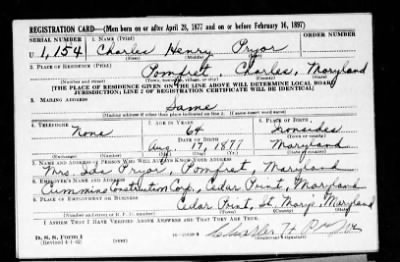 REGISTRATION CARD—(Men born on or after April 28, 1877 and on or before February 16, 1897)
SERIAL NUMBER 1. NAME (Print) ORDER NUMBER
U 1,154 Charles Henry Pryor
(First) (Middle) (Last)
2. PLACE OF RESIDENCE (Print)
Pomfret, Charles, Maryland
(Town) (County) (State)
[THE PLACE OF RESIDENCE GIVEN ON THE LINE ABOVE WILL DETERMINE LOCAL BOARD
JURISDICTION; LINE 2 OF REGISTRATION CERTIFICATE WILL BE IDENTICAL]
3. MAILING ADDRESS
Same
[Mailing address if other than place indicated on line 2. If same insert word same]
4. TELEPHONE 5. AGE IN YEARS 6. PLACE OF BIRTH
None 64 Ironsides
DATE OF BIRTH
Aug. 17, 1877 Maryland
(Mo.) (Day) (Yr.)
7. NAME AND ADDRESS OF PERSON WHO WILL ALWAYS KNOW YOUR ADDRESS
Mrs. Ida Pryor, Pomfret Maryland
8. EMPLOYER'S NAME AND ADDRESS
Cummins Construction Corp., Cedar Point, Maryland
9. PLACE OF EMPLOYMENT OR BUSINESS
Cedar Point, St. Marys Maryland
(Number and street or R. F. D. number) (Town) (County) (State)
I AFFIRM THAT I HAVE VERIFIED ABOVE ANSWERS AND THAT THEY ARE TRUE.
D. S. S. Form 1
(Revised 4-1-42) (over)